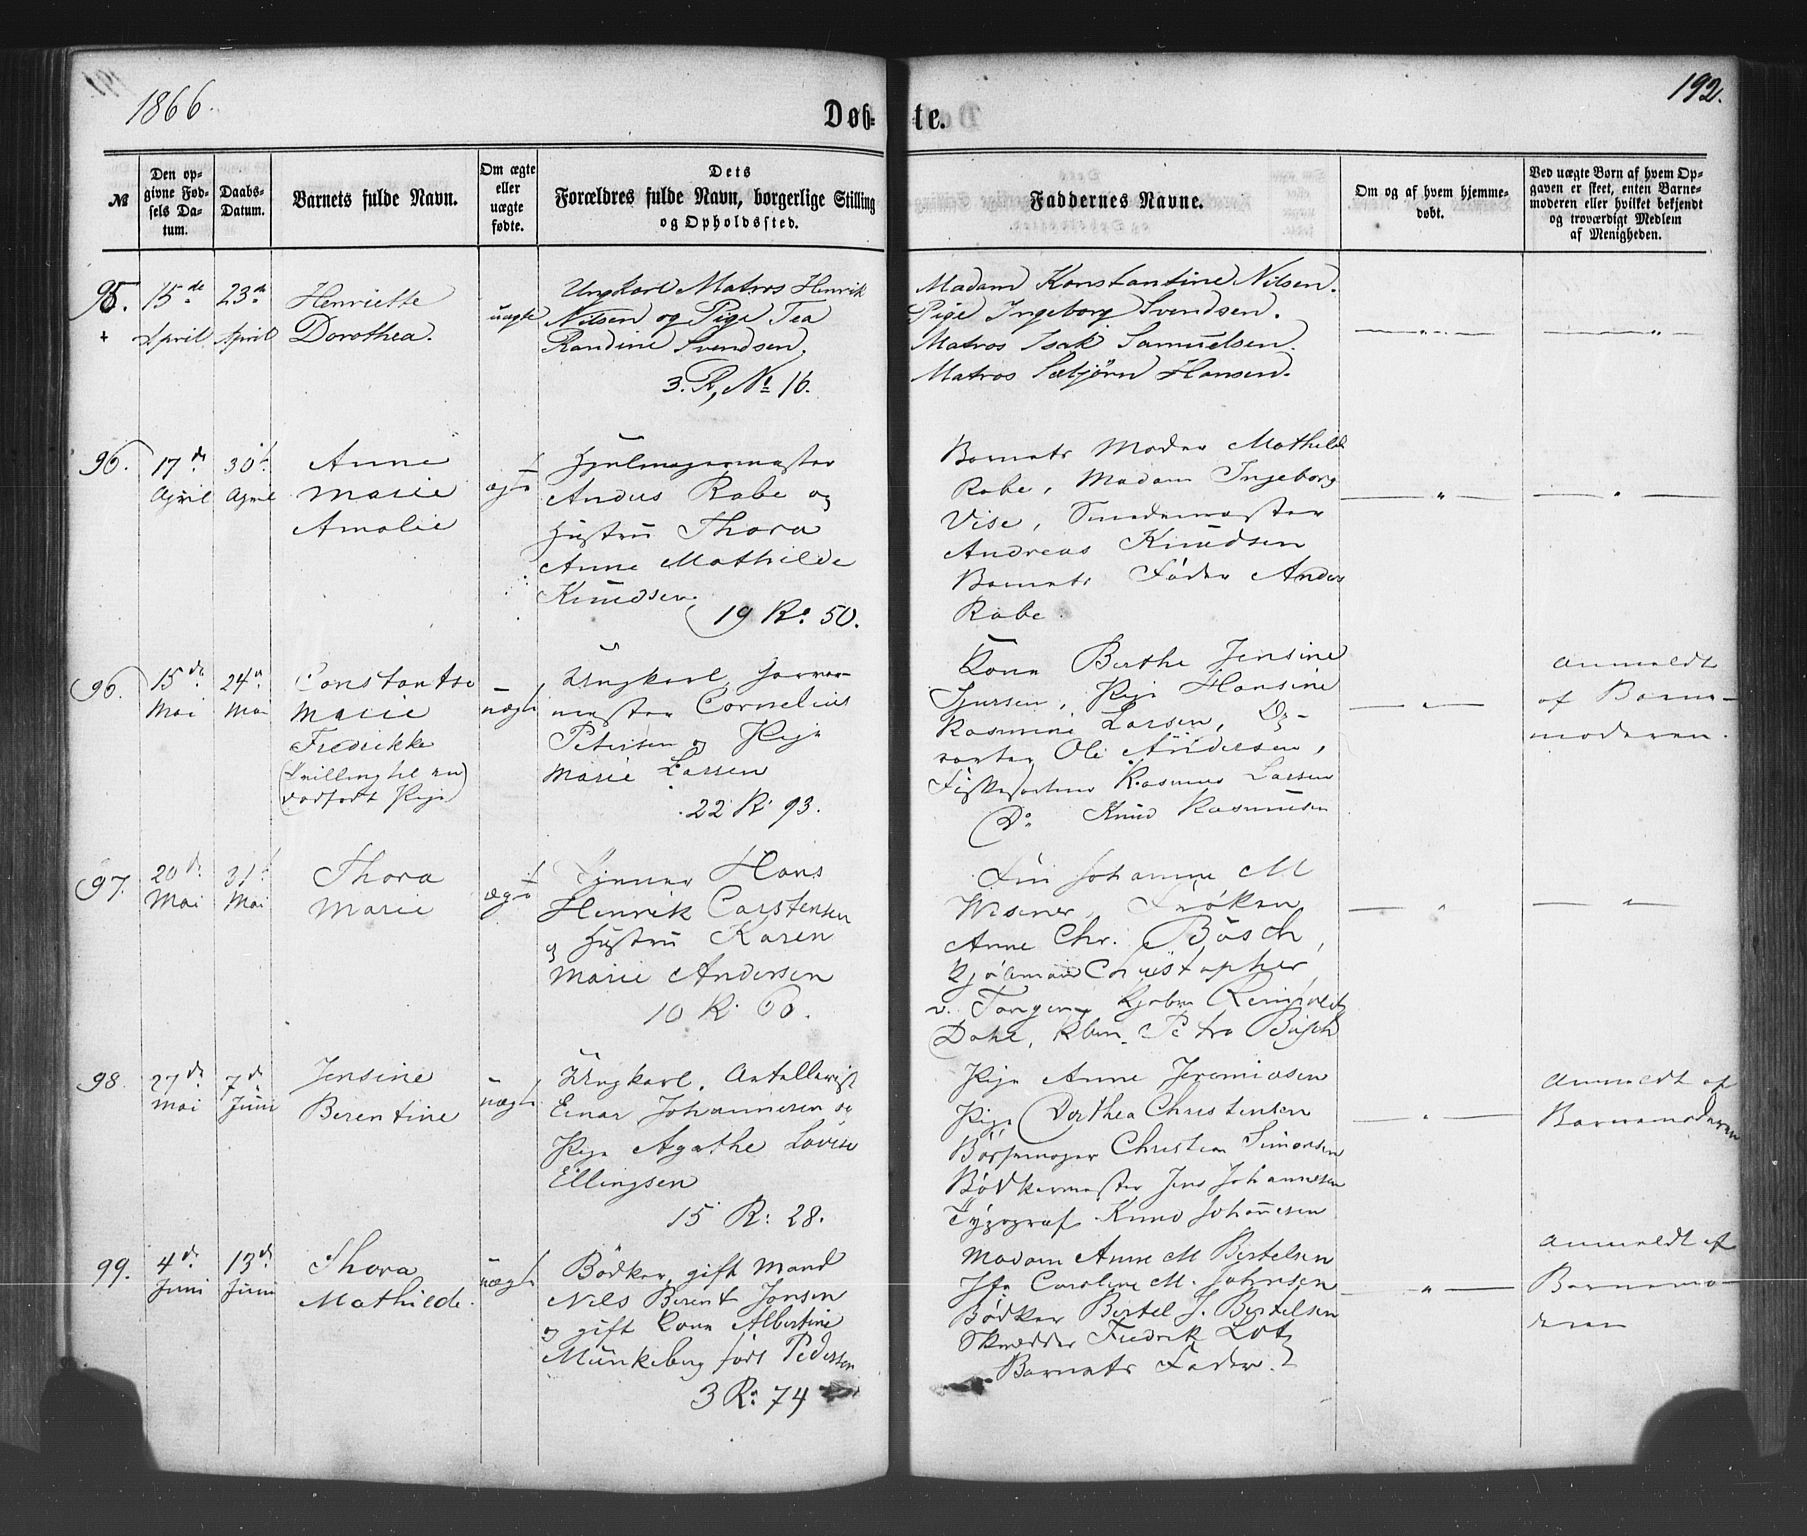 1866.
192.
Døbte.
№
Den opgivne Fødsels Datum.
Daabs-Datum.
Barnets fulde Navn.
Om ægte eller uægte fødte.
Dets Forældres fulde Navn, borgerlige Stilling og Opholdssted.
Faddernes Navne.
Om og af hvem hjemmedøbt.
Ved uægte Børn af hvem Opgaven er skeet, enten Barnemoderen eller hvilket bekjendt og troværdigt Medlem af Menigheden.
95.
15de April
23de April
Henriette
Dorothea.
uægte
Ungkarl Matros Henrik
Nilsen og Pige Tea
Randine Svendsen.
3. R, № 16.
Madam Konstantine Nilsen.
Pige Ingeborg Svendsen.
Matros Isak Samuelsen.
Matros Sæbjörn Hansen.
96.
17de April
30t April
Anne
Marie
Amalie
ægte
Hjulmagermester
Andres Rabe og
Hustru Thora
Anne Mathilde
Knudsen.
19 R: 50.
Barnets Moder Mathilde
Rabe, Madam Ingeborg
Vise, Smedemester
Andreas Knudsen
Barnets Fader Anders
Rabe.
96.
15de Mai
24d Mai
Constantse
Marie
Fredrikke
(Tvilling til en
dødfødt Pige)
uægte
Ungkarl,
Cornelius
Petersen og Pige
Marie Larsen
22 R: 93.
Kone Berthe Jensine
Sjursen, Pige Hansine
Rasmine Larsen,
Ole Andersen,
Rasmus Larsen
Do Knud Rasmusen
Anmeldt
af Barne-
moderen.
97.
20de Mai
31t Mai
Thora
Marie
ægte
Hans
Henrik Carstensen
og Hustru Karen
Marie Andersen
10 R: 66.
Johanne M
Wiesener, Frøken
Anne Chr. Bösch,
Kjöbmand Christopher
v. Tangen, Kjøbm Reinholdt
Dahl, Kbm. Petra Bösch
98
27de Mai
7de Juni
Jensine
Berentine
uægte
Ungkarl,
Einar Johannesen og
Pige Agathe Lovise
Ellingsen
15 R: 28.
Pige Anne Jeremiasen
Pige Dorthea Christensen
Børsemager Christian Simonsen
Bødkermester Jens Johannesen
Typograf Knud Johannesen
Anmeldt af
Barnemoderen
99.
4de Juni
13de Juni
Thora
Mathilde.
uægte
Bödker, gift Mand
Nils Berent Jonsen
og gift Kone Albertine
Munkeberg født Pedersen
3 R: 74
Madam Anne M Bertelsen
Jfr Caroline M. Johnsen
Bödker Bertel J. Bertelsen
Skrædder Fredrik Lotz
Barnets Fader.
Anmeldt af
Barnemo-
deren